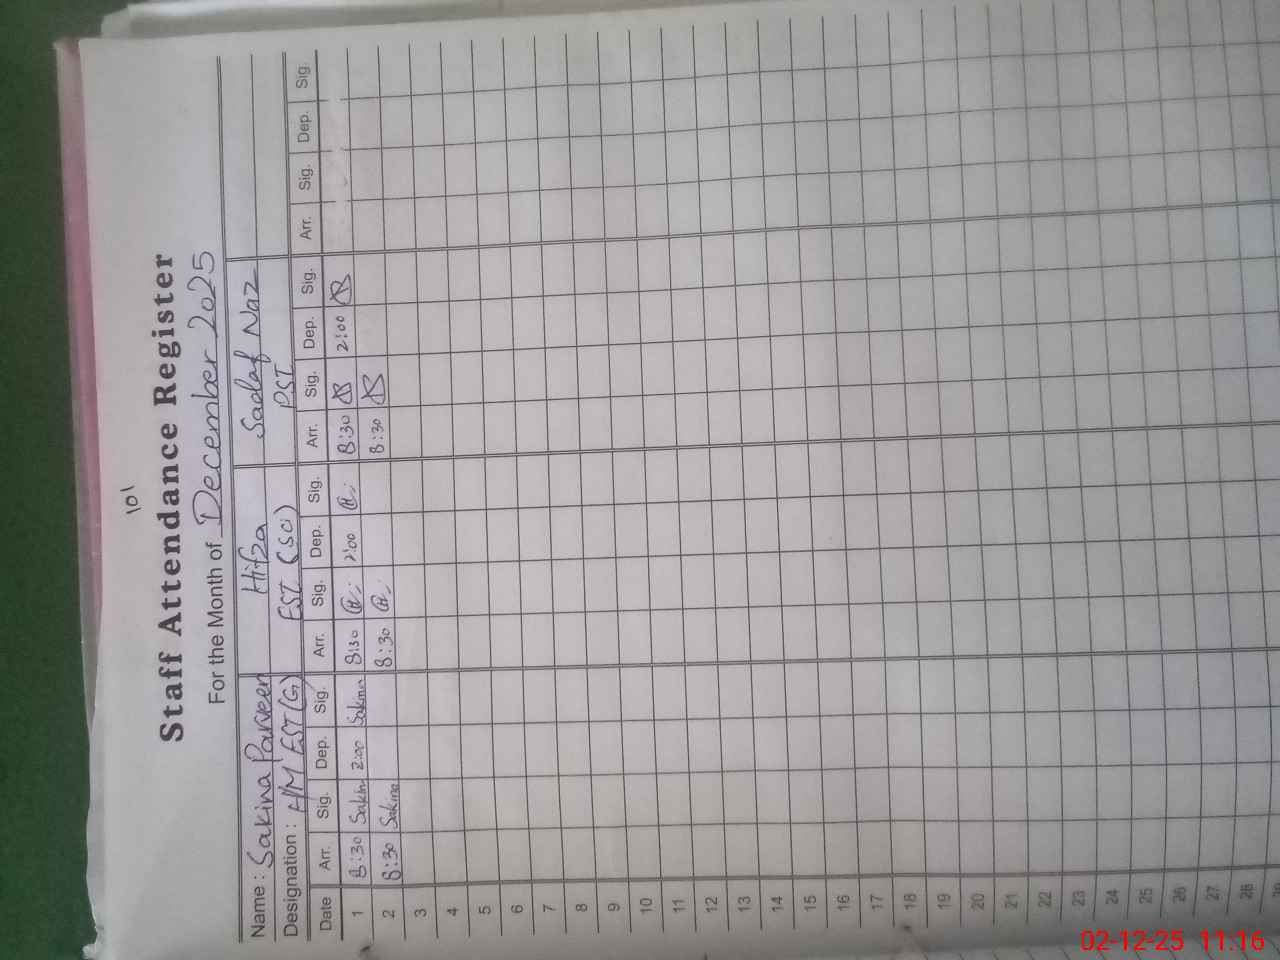 101
Staff Attendance Register
For the Month of December 2025
Name: Sakina Parveen Hifza Sadaf Naz
Designation: H/M EST (G) EST (Sci) PST
Date Arr. Sig. Dep. Sig. Arr. Sig. Dep. Sig. Arr. Sig. Dep. Sig. Arr. Sig. Dep. Sig.
1 8:30 Sakin 2:00 Sakina 8:30 2:00 8:30 2:00
2 8:30 Sakina 8:30 8:30
3
4
5
6
7
8
9
10
11
12
13
14
15
16
17
18
19
20
21
22
23
24
25
26
27
28
02-12-25 11:16